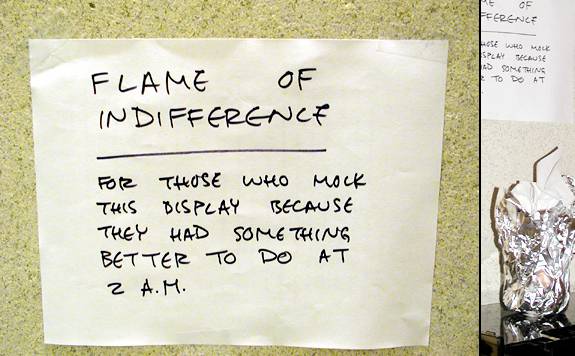 FLAME OF
INDIFFERENCE
FOR THOSE WHO MOCK
THIS DISPLAY BECAUSE
THEY HAD SOMETHING
BETTER TO DO AT
2 A.M.
ME OF
FFERENCE
HOSE WHO MOCK
SPLAY BECAUSE
HAD SOMETHING
R TO DO AT